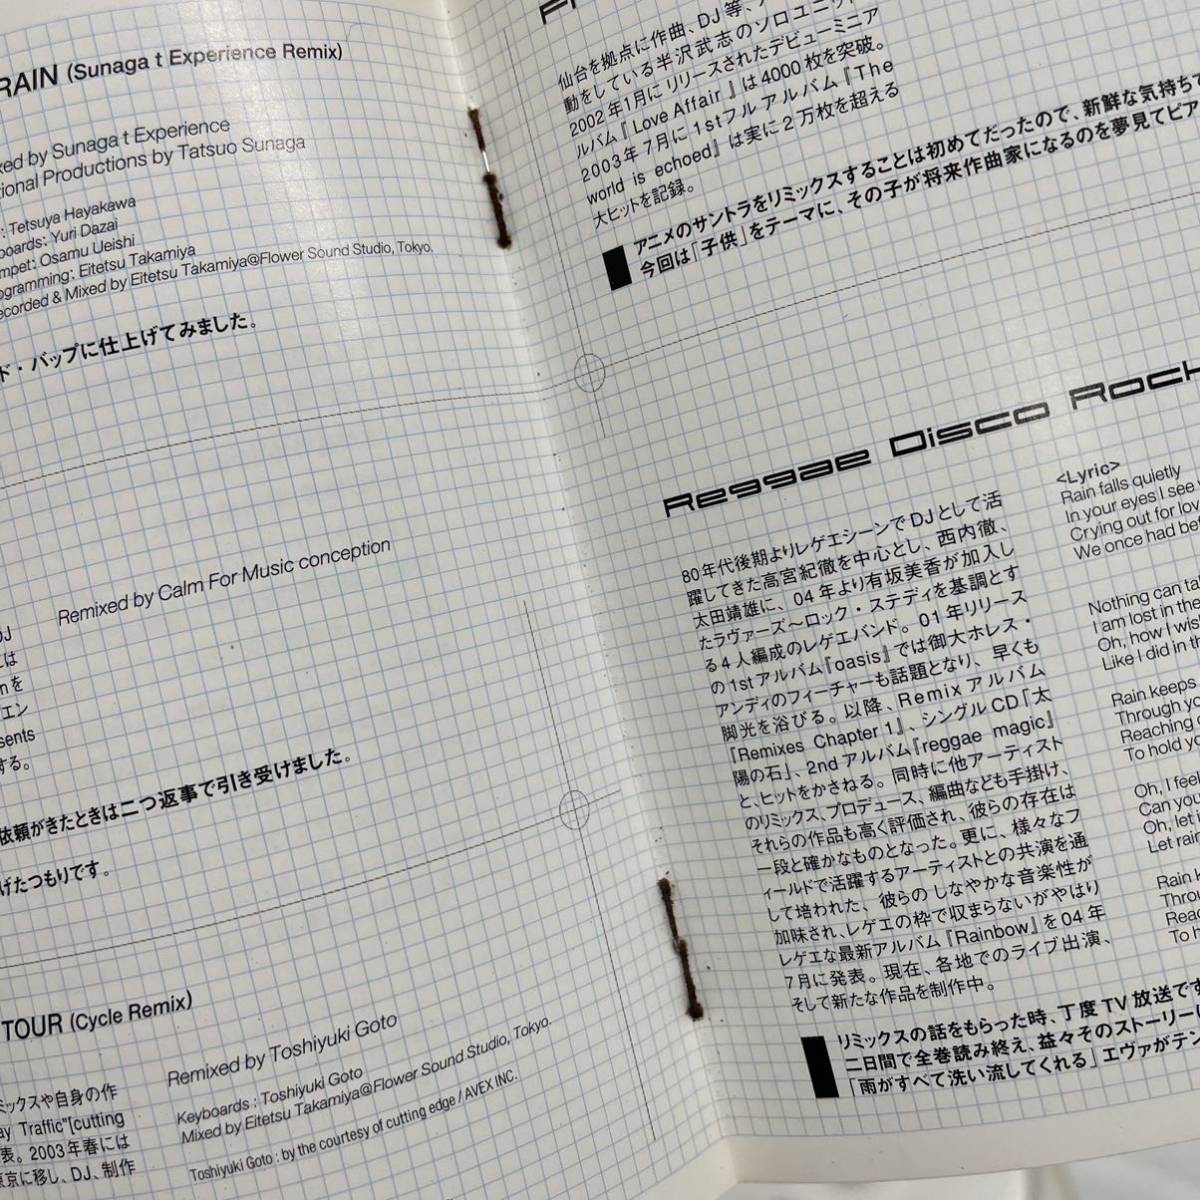 RAIN (Sunaga t Experience Remix)
by Sunaga t Experience
Productions by Tatsuo Sunaga
: Tetsuya Hayakawa
: Yuri Dazai
: Osamu Ueishi
: Eitetsu Takamiya
& Mixed by Eitetsu Takamiya@Flower Sound Studio, Tokyo.
ド・バップに仕上げてみました。
Remixed by Calm For Music conception
DJ
には
nを
エン
sents
する。
依頼がきたときは二つ返事で引き受けました。
げたつもりです。
TOUR (Cycle Remix)
Remixed by Toshiyuki Goto
Keyboards : Toshiyuki Goto
Mixed by Eitetsu Takamiya@Flower Sound Studio, Tokyo.
Toshiyuki Goto : by the courtesy of cutting edge / AVEX INC.
ミックスや自身の作
ay Traffic"[cutting
表。2003年春には
東京に移し、DJ、制作
仙台を拠点に作曲、DJ等、
動をしている半沢武志のソロユニット
2002年1月にリリースされたデビューミニア
ルバム『Love Affair』は4000枚を突破。
2003年7月に1stフルアルバム『The
world is echoed』は実に2万枚を超える
大ヒットを記録。
アニメのサントラをリミックスすることは初めてだったので、新鮮な気持ちで
今回は「子供」をテーマに、その子が将来作曲家になるのを夢見てピア
Reggae Disco Rock
80年代後期よりレゲエシーンでDJとして活
躍してきた高宮紀徹を中心とし、西内徹、
太田靖雄に、04年より有坂美香が加入し
たラヴァーズ～ロック・ステディを基調とす
る4人編成のレゲエバンド。01年リリース
の1stアルバム『oasis』では御大ホレス・
アンディのフィーチャーも話題となり、早くも
脚光を浴びる。以降、Remixアルバム
『Remixes Chapter 1』、シングルCD「太
陽の石」、2ndアルバム『reggae magic』
と、ヒットをかさねる。同時に他アーティスト
のリミックス、プロデュース、編曲なども手掛け、
それらの作品も高く評価され、彼らの存在は
一段と確かなものとなった。更に、様々なフ
ィールドで活躍するアーティストとの共演を通
して培われた、彼らのしなやかな音楽性が
加味され、レゲエの枠で収まらないがやはり
レゲエな最新アルバム『Rainbow』を04年
7月に発表。現在、各地でのライブ出演、
そして新たな作品を制作中。
<Lyric>
Rain falls quietly
In your eyes I see
Crying out for
We once had
Nothing can
I am lost in the
Oh, how I wish
Like I did in
Rain keeps
Through
Reaching
To hold
Oh, I feel
Can you
Oh, let
Let rain
Rain
To
リミックスの話をもらった時、丁度TV放送です
二日間で全巻読み終え、益々そのストーリーに
「雨がすべて洗い流してくれる」エヴァがテン